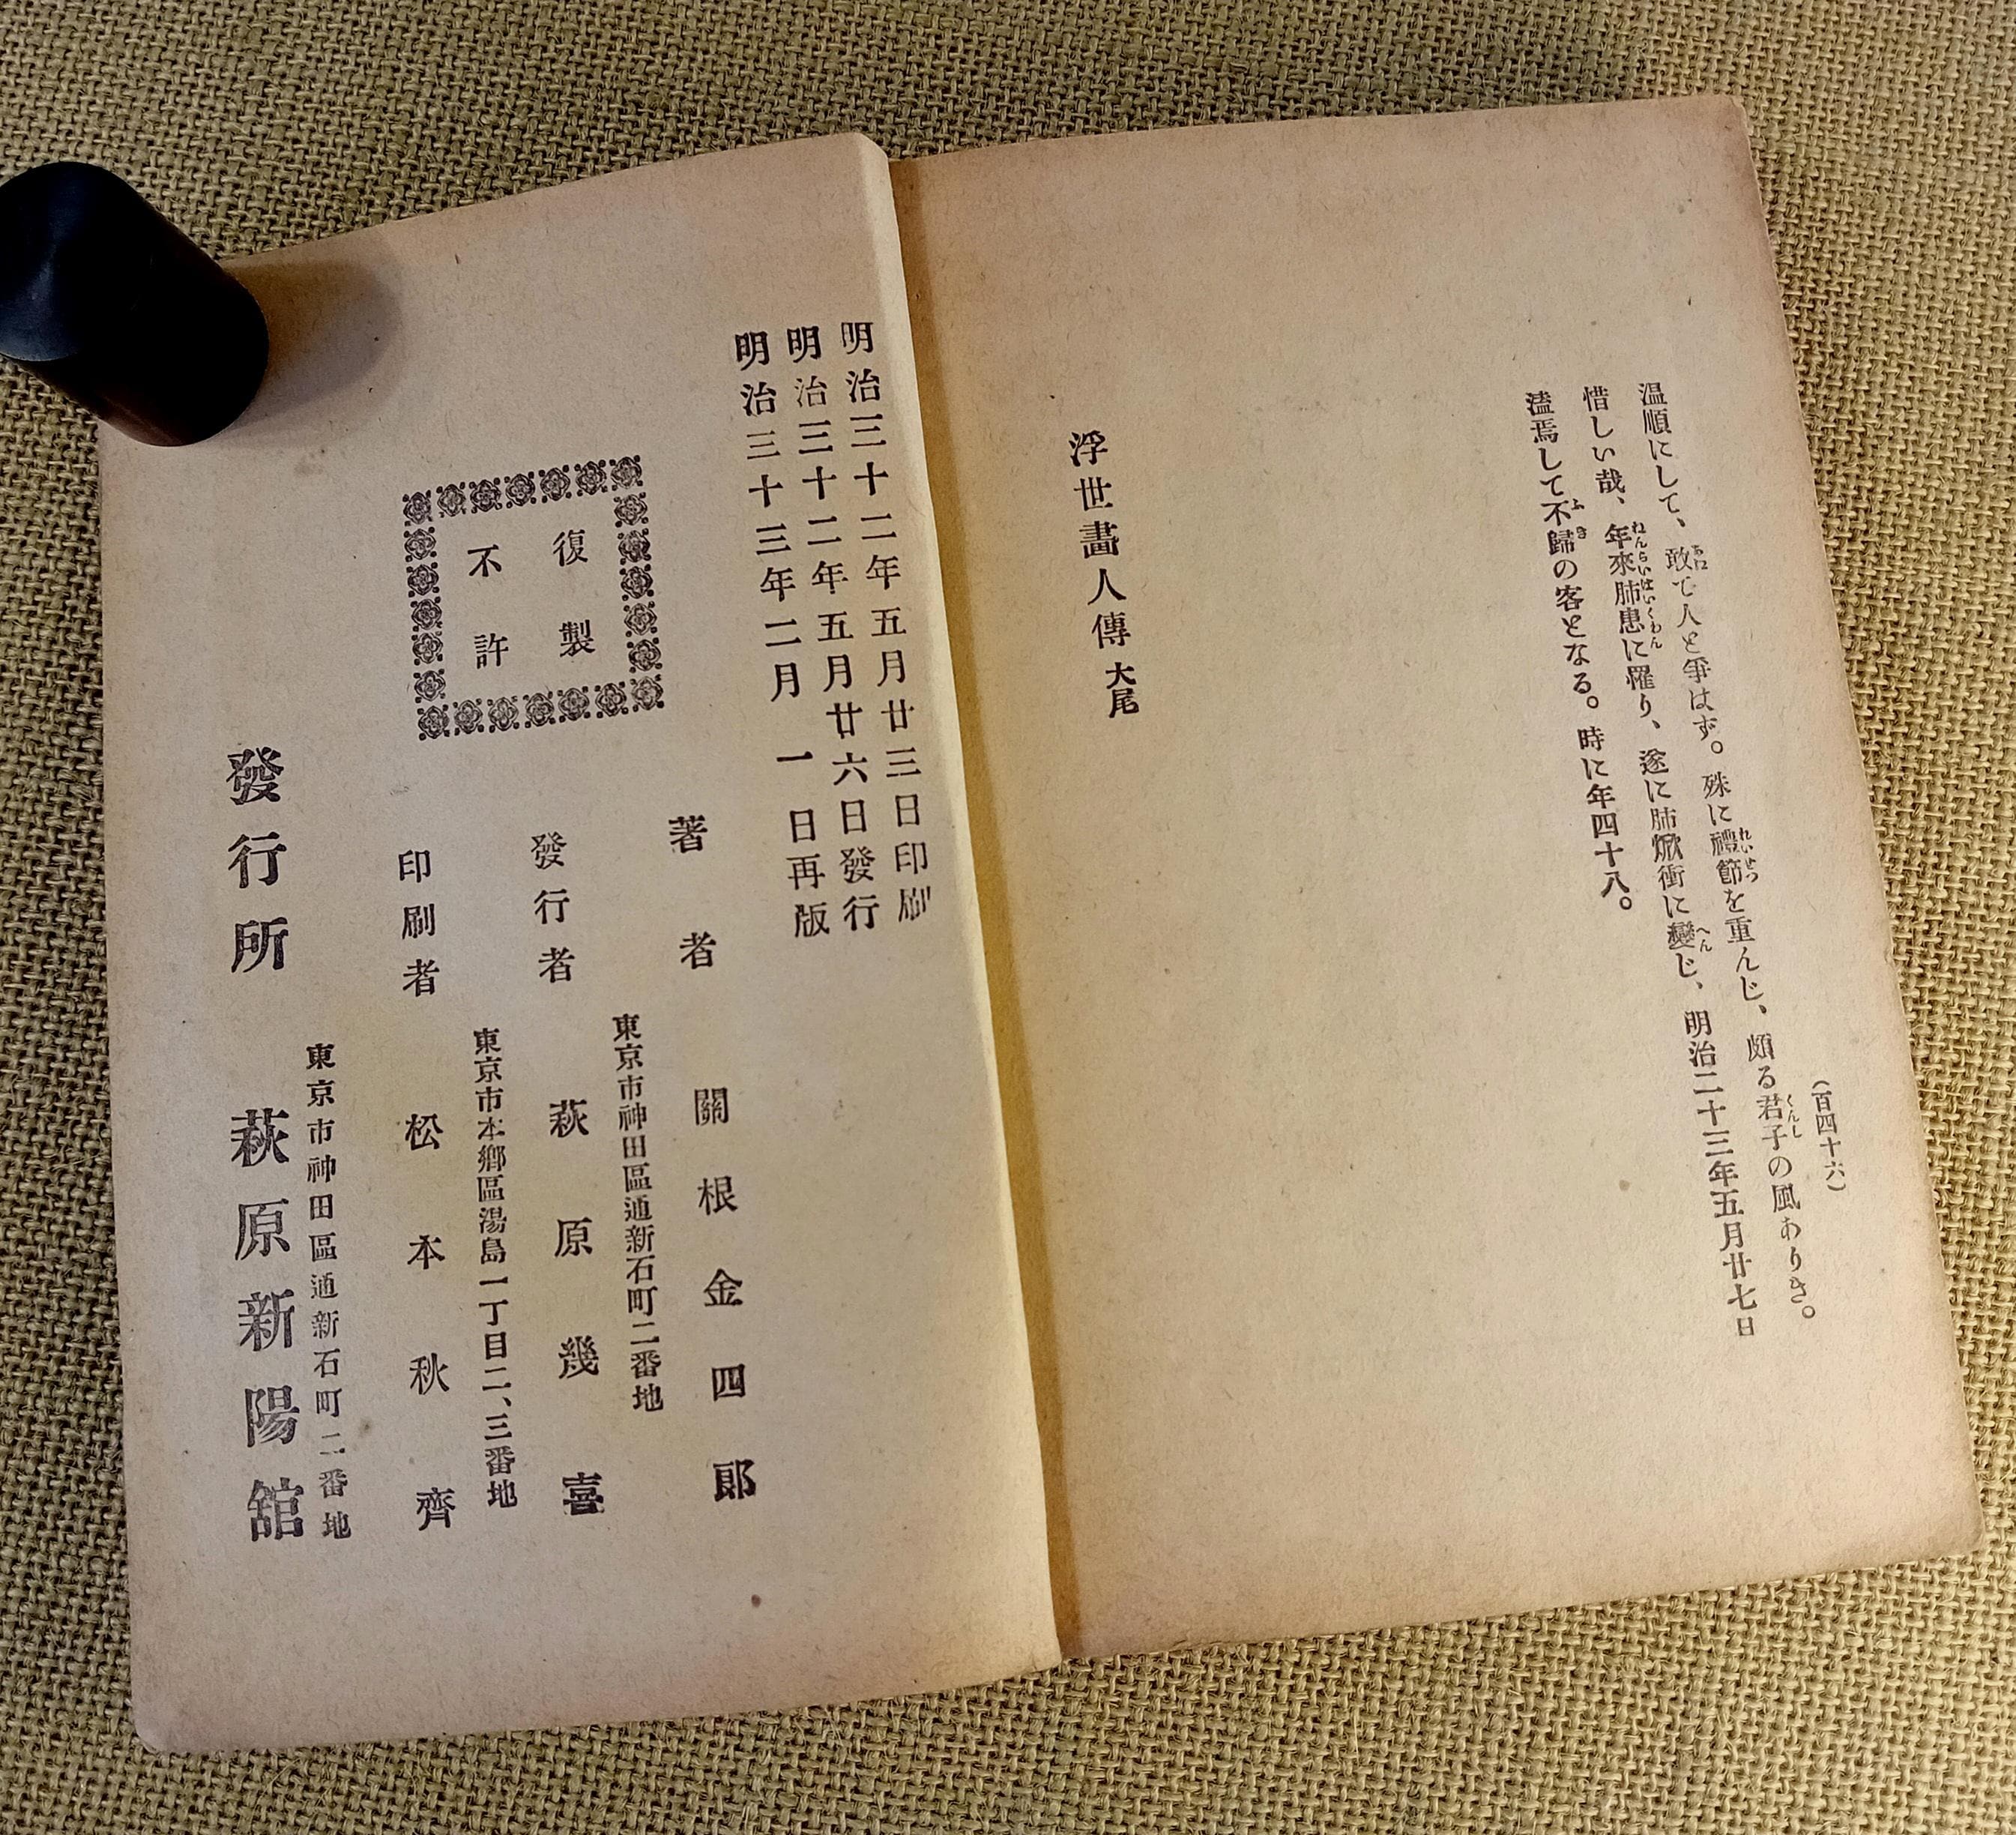 (百四十六)
温順にして、敢て人と爭はず。殊に禮節を重んじ、頗る君子の風ありき。
惜しい哉、年來肺患に罹り、遂に肺焮衝に變じ、明治二十三年五月廿七日
溘焉して不歸の客となる。時に年四十八。
浮世畫人傳大尾
明治三十二年五月廿三日印刷
明治三十二年五月廿六日發行
明治三十三年二月一日再版
復製
不許
著者 關根金四郎
東京市神田區通新石町二番地
發行者 萩原幾喜
東京市本鄉區湯島一丁目二、三番地
印刷者 松本秋齊
東京市神田區通新石町二番地
發行所 萩原新陽舘